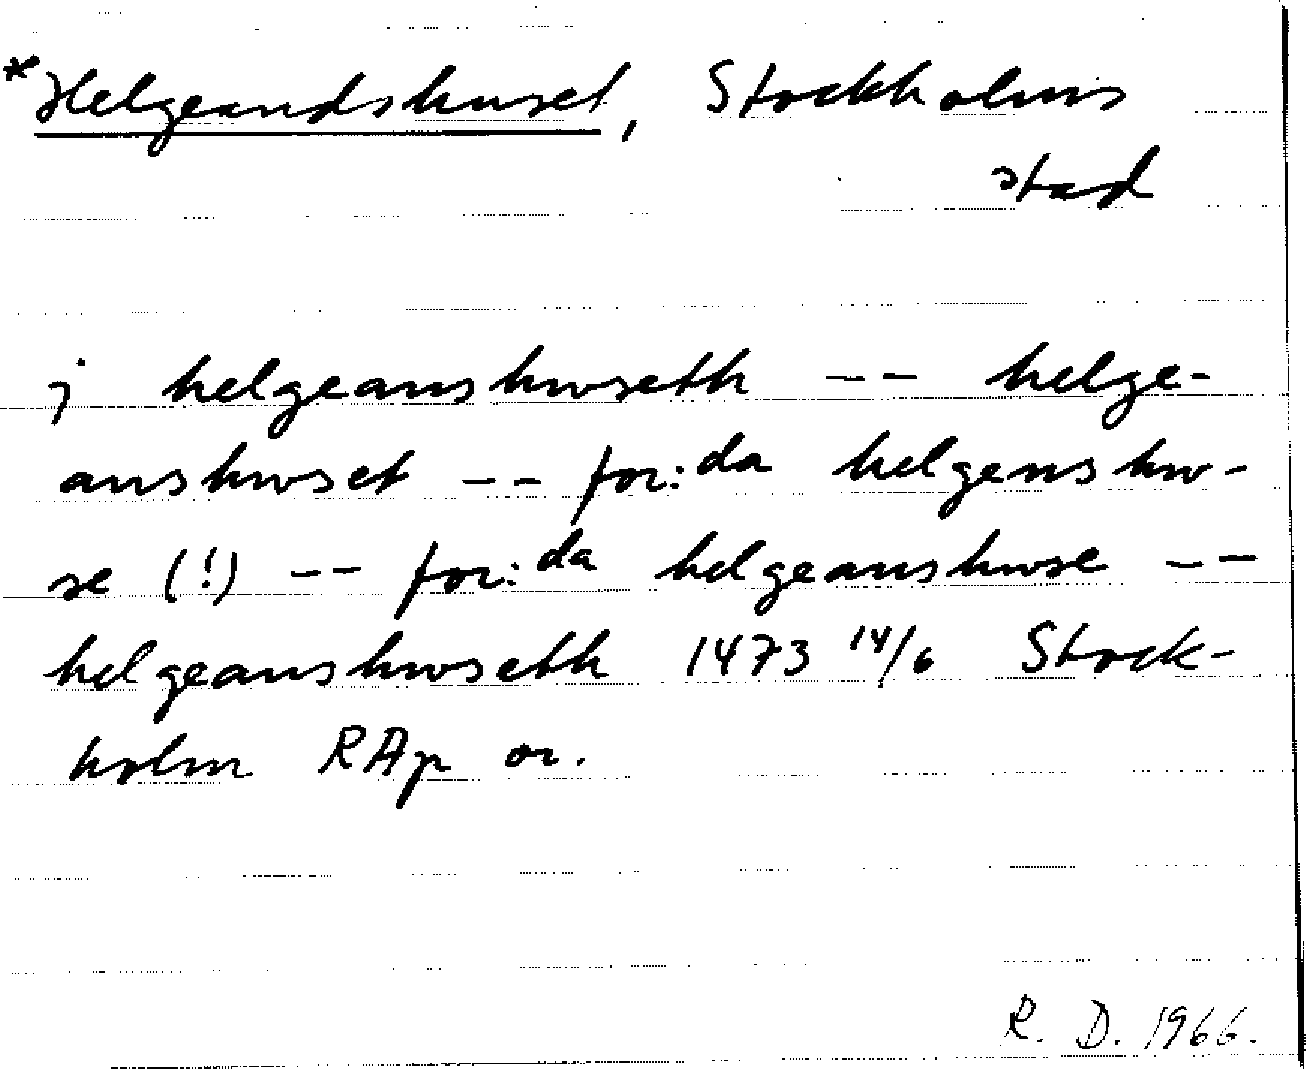 *Helgeandshuset, Stockholms
stad
j helgeanshwseth -- helge-
anshwset -- for:da helgenshw-
se (!) -- for:da helgeanshwse --
helgeanshwseth 1473 14/6 Stock-
holm RAp or.
R. D. 1966.